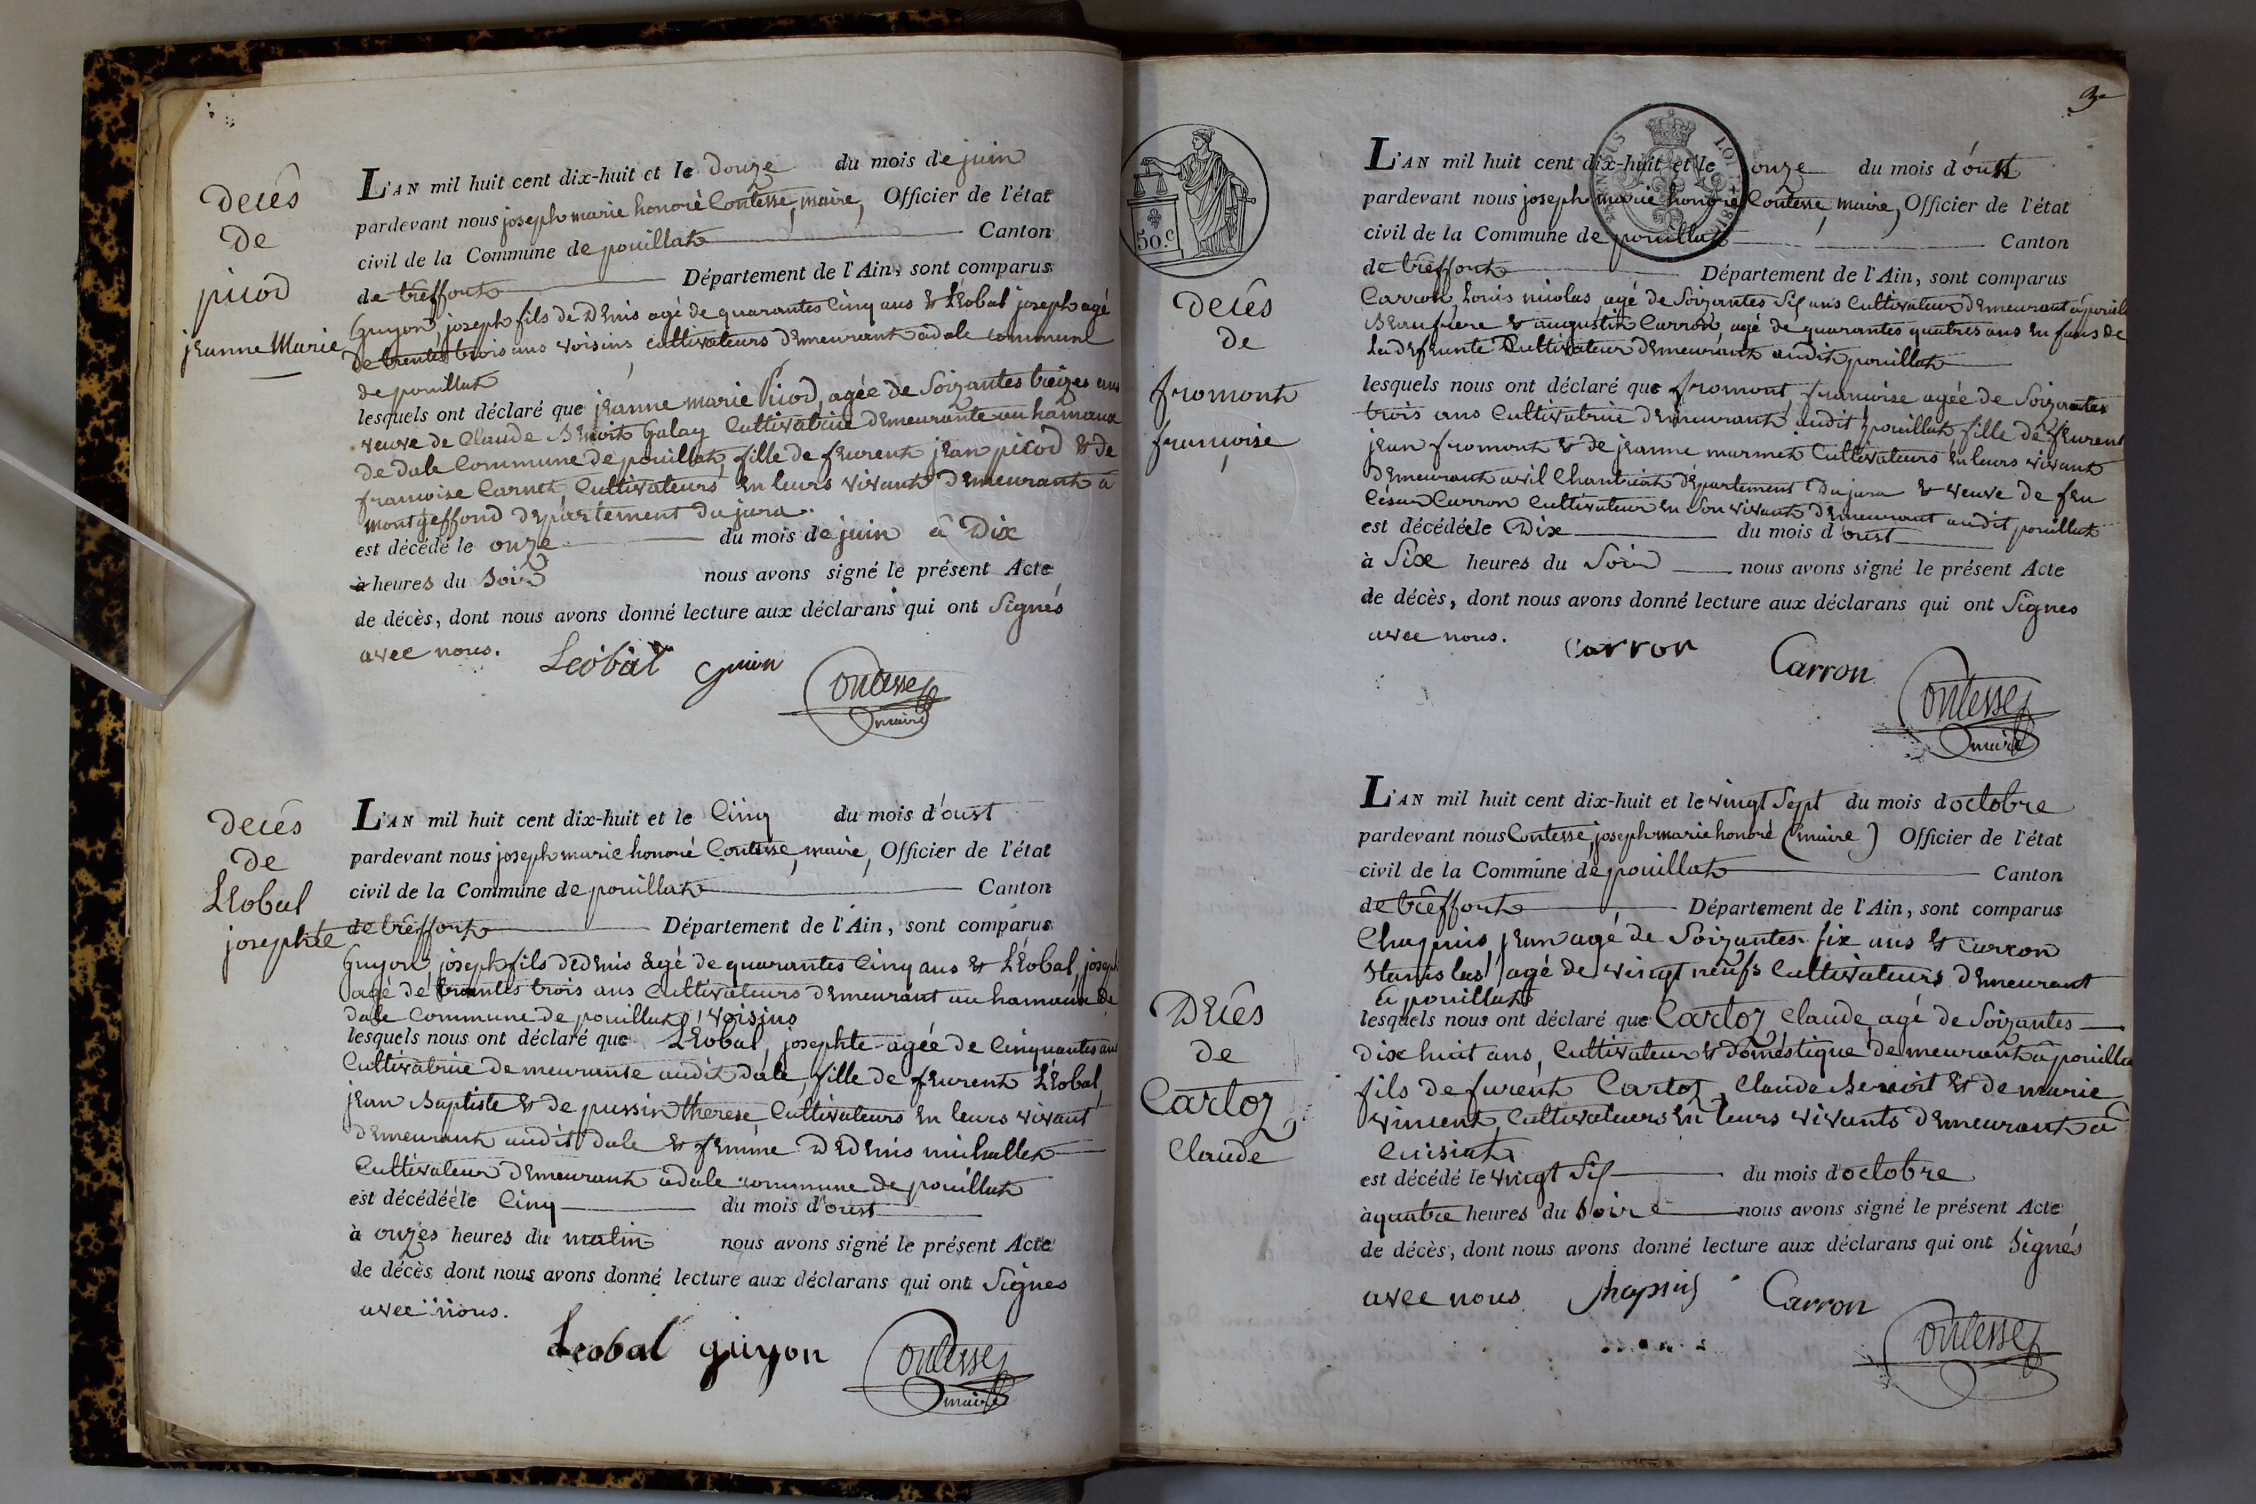 Decês
de
picod
jeanne Marie
L'AN mil huit cent dix-huit et le douze du mois de juin
pardevant nous joseph marie honoré Contesse, maire, Officier de l'état
civil de la Commune de pouillat Canton
de trêffort Département de l'Ain, sont comparus
Guyon, joseph fils de Denis agé de quarantes Cinq ans & Léobal joseph agé
de trentes trois ans voisins cultivateurs demeurant a dale commune
de pouillat
lesquels ont déclaré que jeanne marie Picod, agée de Soizantes treizes ans
veuve de Claude Benoit Galay Cultivatrice demeurante au hamaux
de dale Commune de pouillat, fille de feurent jean picod & de
francoise Carnet, Cultivateurs en leurs vivant demeurant a
montgeffond département du jura.
est décédé le onze du mois de juin à Dix
à heures du Soir nous avons signé le présent Acte
de décès, dont nous avons donné lecture aux déclarans qui ont Signés
avec nous.
Leobal guion Contesse
maire
Decês
de
Léobal
josephte
L'AN mil huit cent dix-huit et le Cinq du mois d'oust
pardevant nous joseph marie honoré Contesse, maire, Officier de l'état
civil de la Commune de pouillat Canton
de trêffort Département de l'Ain, sont comparus
Guyon, joseph fils dedenis agé de quarantes Cinq ans & Léobal, joseph
agé de trantes trois ans Cultivateurs demeurant au hamaux de
dale Commune de pouillat, voisins
lesquels nous ont déclaré que Léobal, josephte agée de Cinquantes ans
Cultivatrice demeurante audit dale, fille de feurent Léobal,
jean Baptiste & de pussin therese Cultivateurs en leurs vivant
demeurant audit dale & femme de denis michallet
Cultivateur demeurant a dale commune de pouillat
est décédée le Cinq du mois d'oust
à onzes heures du matin nous avons signé le présent Acte
de décès dont nous avons donné lecture aux déclarans qui ont Signes
avec nous.
Leobal guiyon Contesse
maire
3e
50.c
LOI 1816
L'AN mil huit cent dix-huit et le onze du mois d'oust
pardevant nous joseph marie honoré Contesse, maire, Officier de l'état
civil de la Commune de pouillat Canton
de trêffort Département de l'Ain, sont comparus
Decês
de
fromont
francoise
Carron, Louis nicolas, agé de Soizantes Six ans Cultivateur demeurant à pouillat
Beaufrere & augustin Carron, agé de quarantes quatres ans
La defeunte Cultivateur demeurant audit pouillat
lesquels nous ont déclaré que fromont, francoise agée de Soizantes
trois ans Cultivatrice demeurant audit pouillat, fille de feurent
jean fromont & de jeanne marmet Cultivateurs en leurs vivant
demeurant a vil Chantriat département du jura & veuve de feu
Cesar Carron Cultivateur en Son vivant demeurant audit pouillat
est décédée le Dix du mois d'oust
à Six heures du Soir nous avons signé le présent Acte
de décès, dont nous avons donné lecture aux déclarans qui ont Signes
avec nous.
Carron Carron Contesse
maire
L'AN mil huit cent dix-huit et le vingt Sept du mois doctobre
pardevant nous Contesse, joseph marie honoré (maire) Officier de l'état
civil de la Commune de pouillat Canton
de trêffort Département de l'Ain, sont comparus
Chapuis, jean agé de Soizantes six ans & Carron
Stanislas, agé de vingt neufs Cultivateurs demeurant
à pouillat
Decês
de
Cartoz
Claude
lesquels nous ont déclaré que Cartoz, Claude, agé de Soizantes
dix huit ans, Cultivateur & domestique demeurant à pouillat
fils de furent Cartoz, Claude Benoit & de marie
vincent, Cultivateurs en leurs vivants demeurant à
Cuisiat
est décédé le vingt Six du mois doctobre
à quatre heures du Soir nous avons signé le présent Acte
de décès, dont nous avons donné lecture aux déclarans qui ont Signés
avec nous Carron Contesse